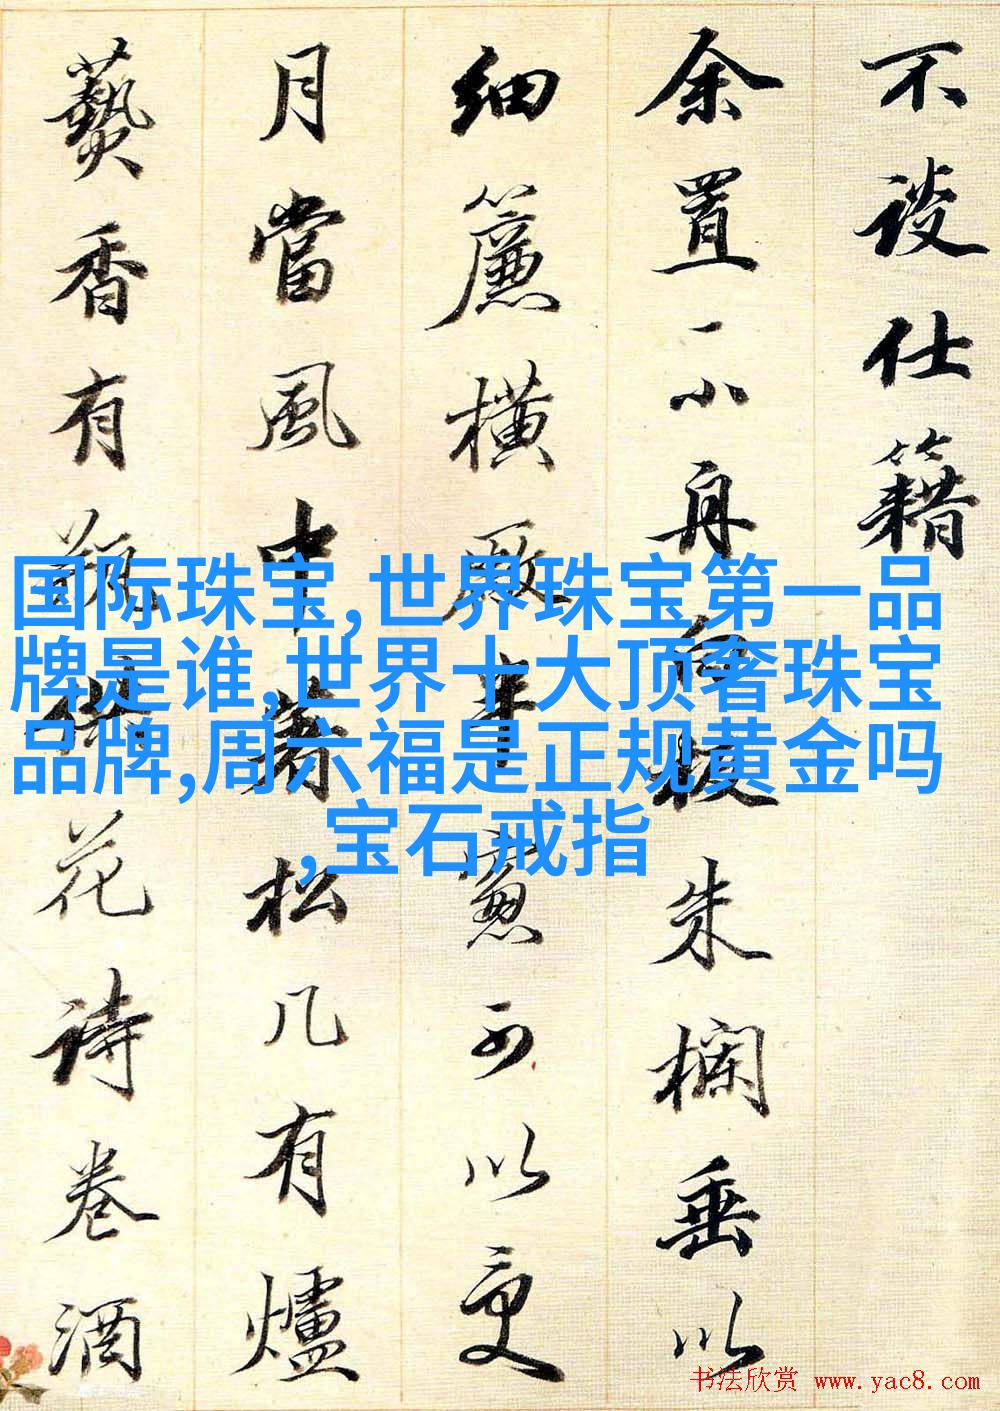 不談仕籍
余置一小舟白板朱欄垂以
細簾橫敞半窓可以更
月當風中著松几有爐
爇香有瓶供花詩卷酒
国际珠宝,世界珠宝第一品
牌是谁,世界十大顶奢珠宝
品牌,周六福是正规黄金吗
,宝石戒指
书法欣赏 www.yac8.com